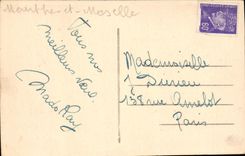 Meurthe-et-Moselle
Tous nos
meilleurs vœux
Mado Ray
Mademoiselle
J Divien
158 rue Amelot
Paris